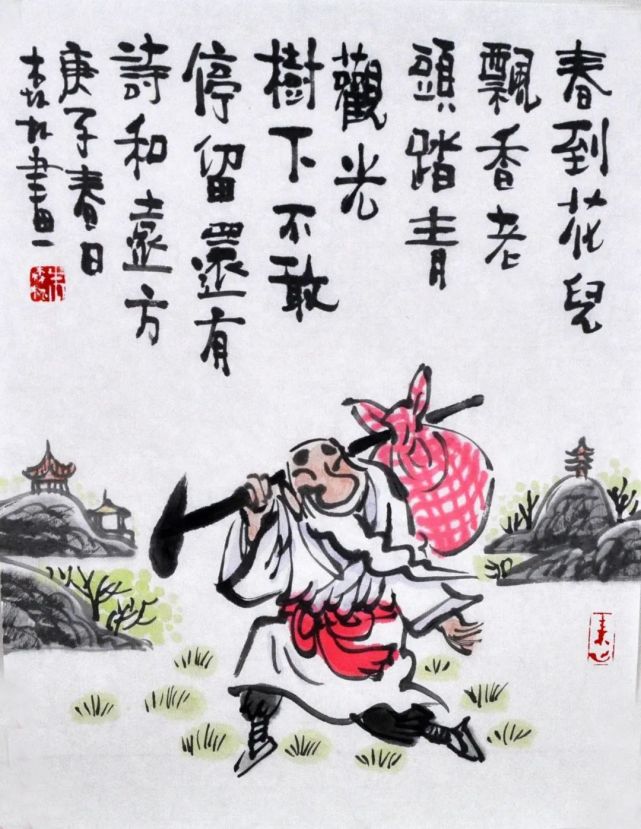 春到花兒
飄香老
頭踏青
觀光
樹下不敢
停留還有
詩和遠方
庚子春日
畫